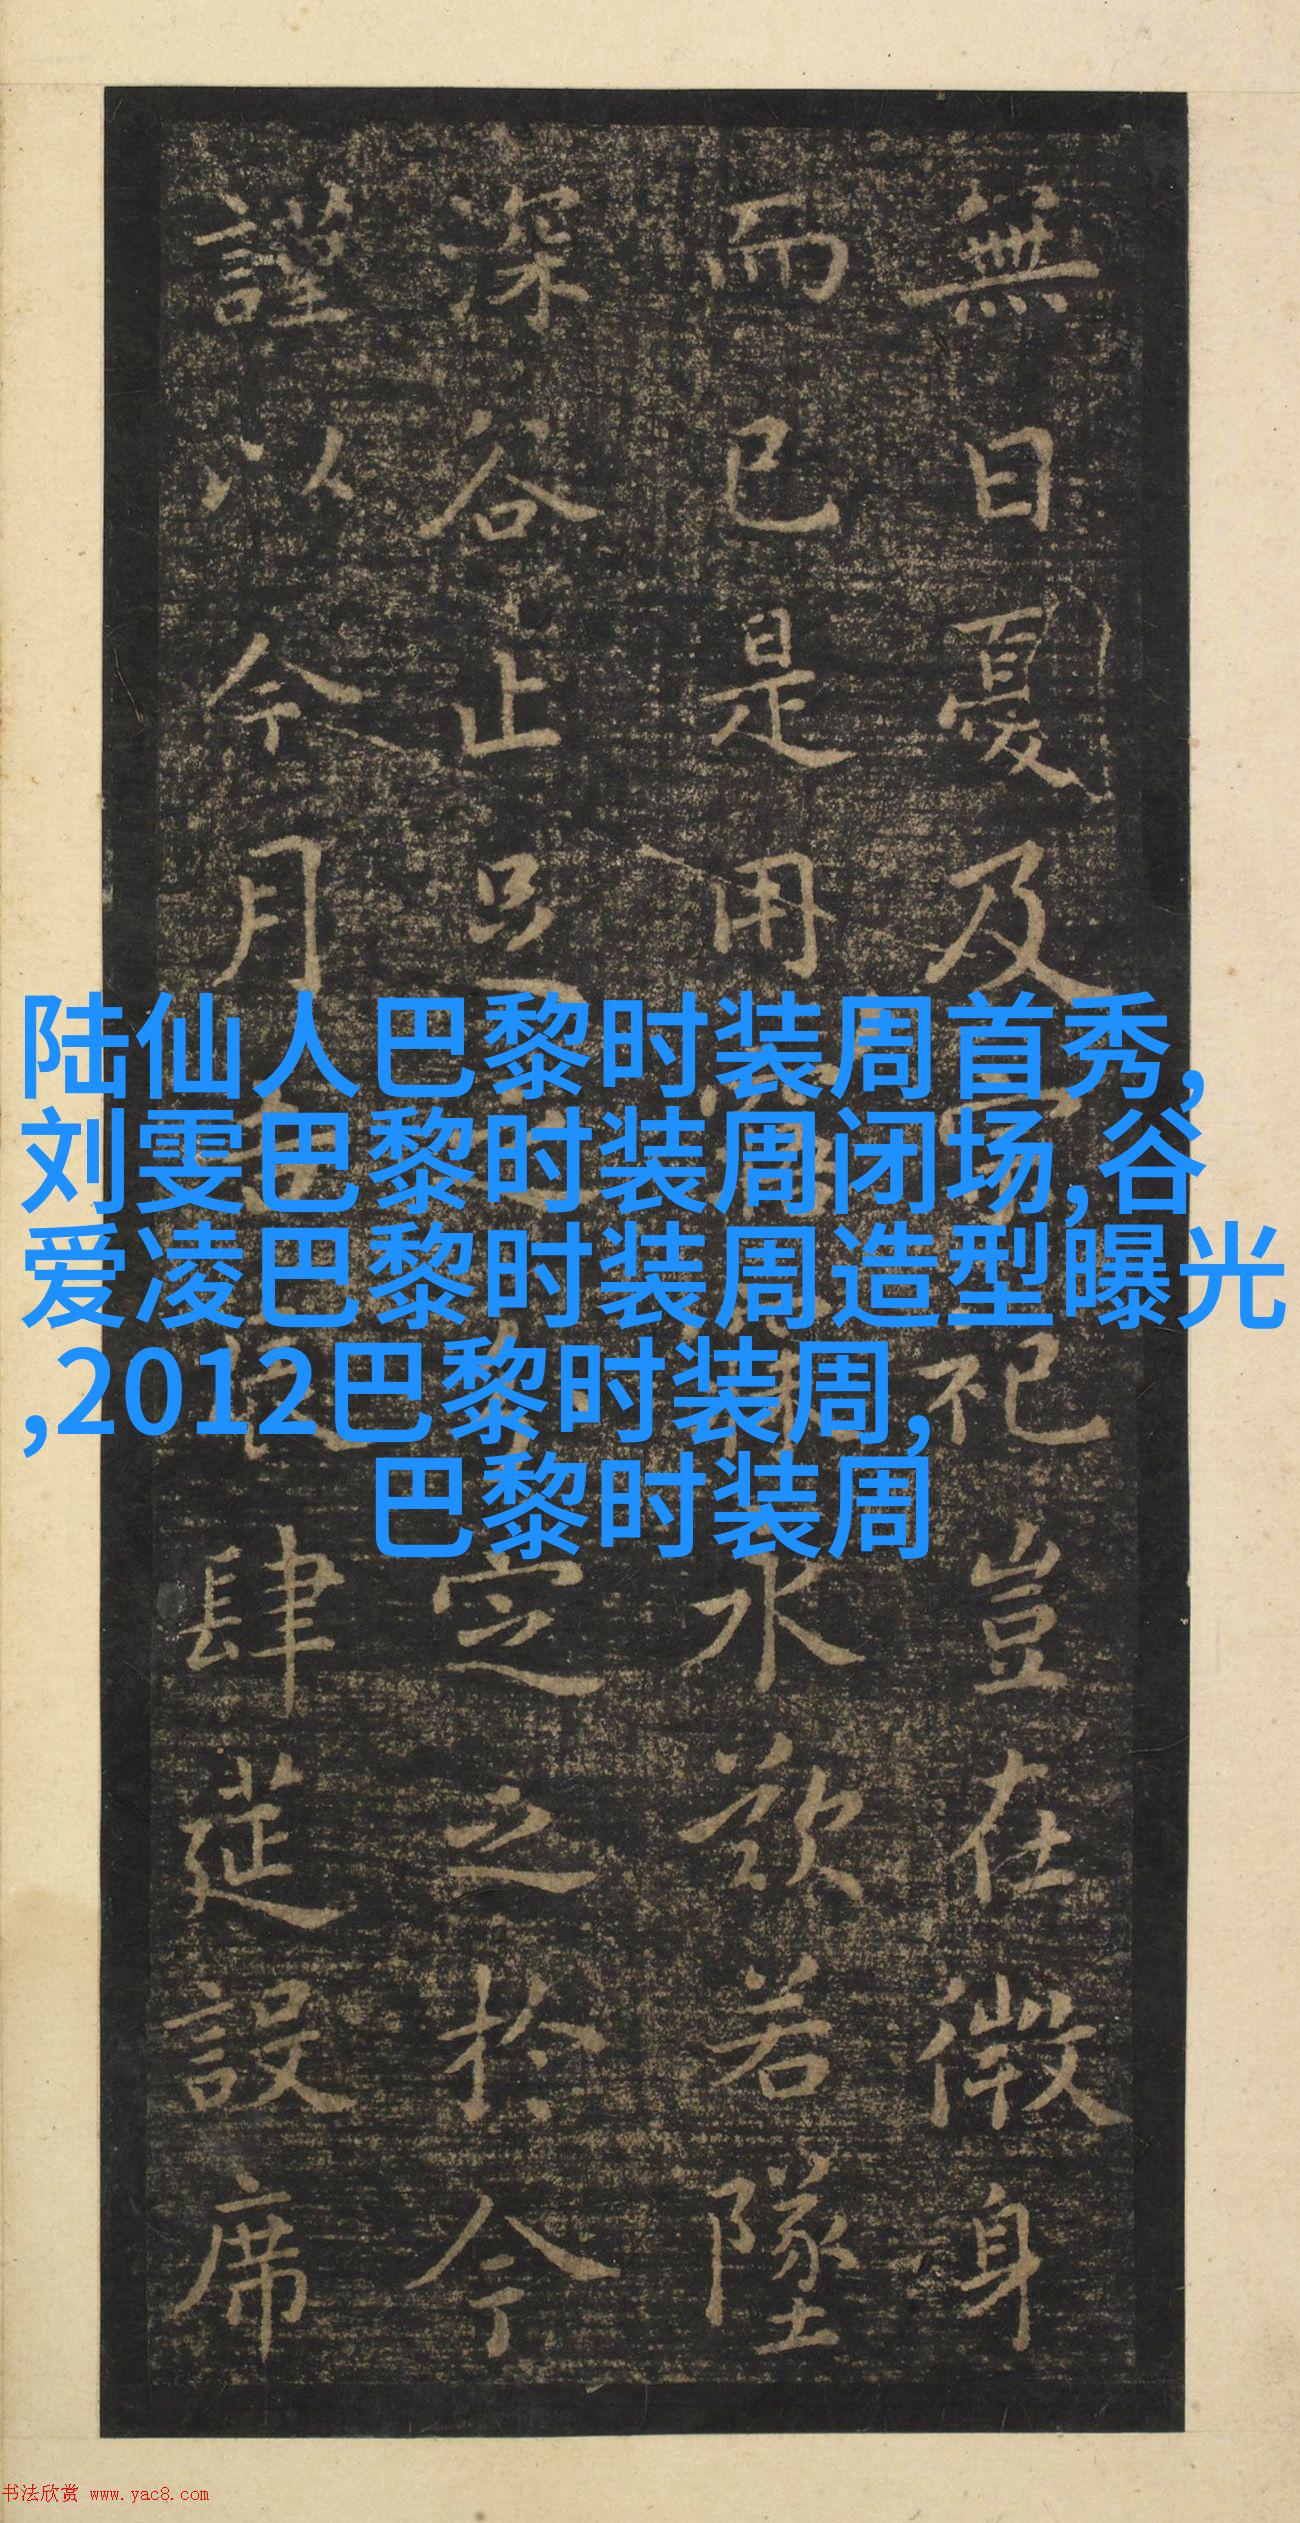 無日憂及祀豈在微身
而已是用永歎若墜
深谷止足定之於今
謹以今月肆筵設席
陆仙人巴黎时装周首秀,
刘雯巴黎时装周闭场,谷
爱凌巴黎时装周造型曝光
,2012巴黎时装周,
巴黎时装周
书法欣赏 www.yac8.com